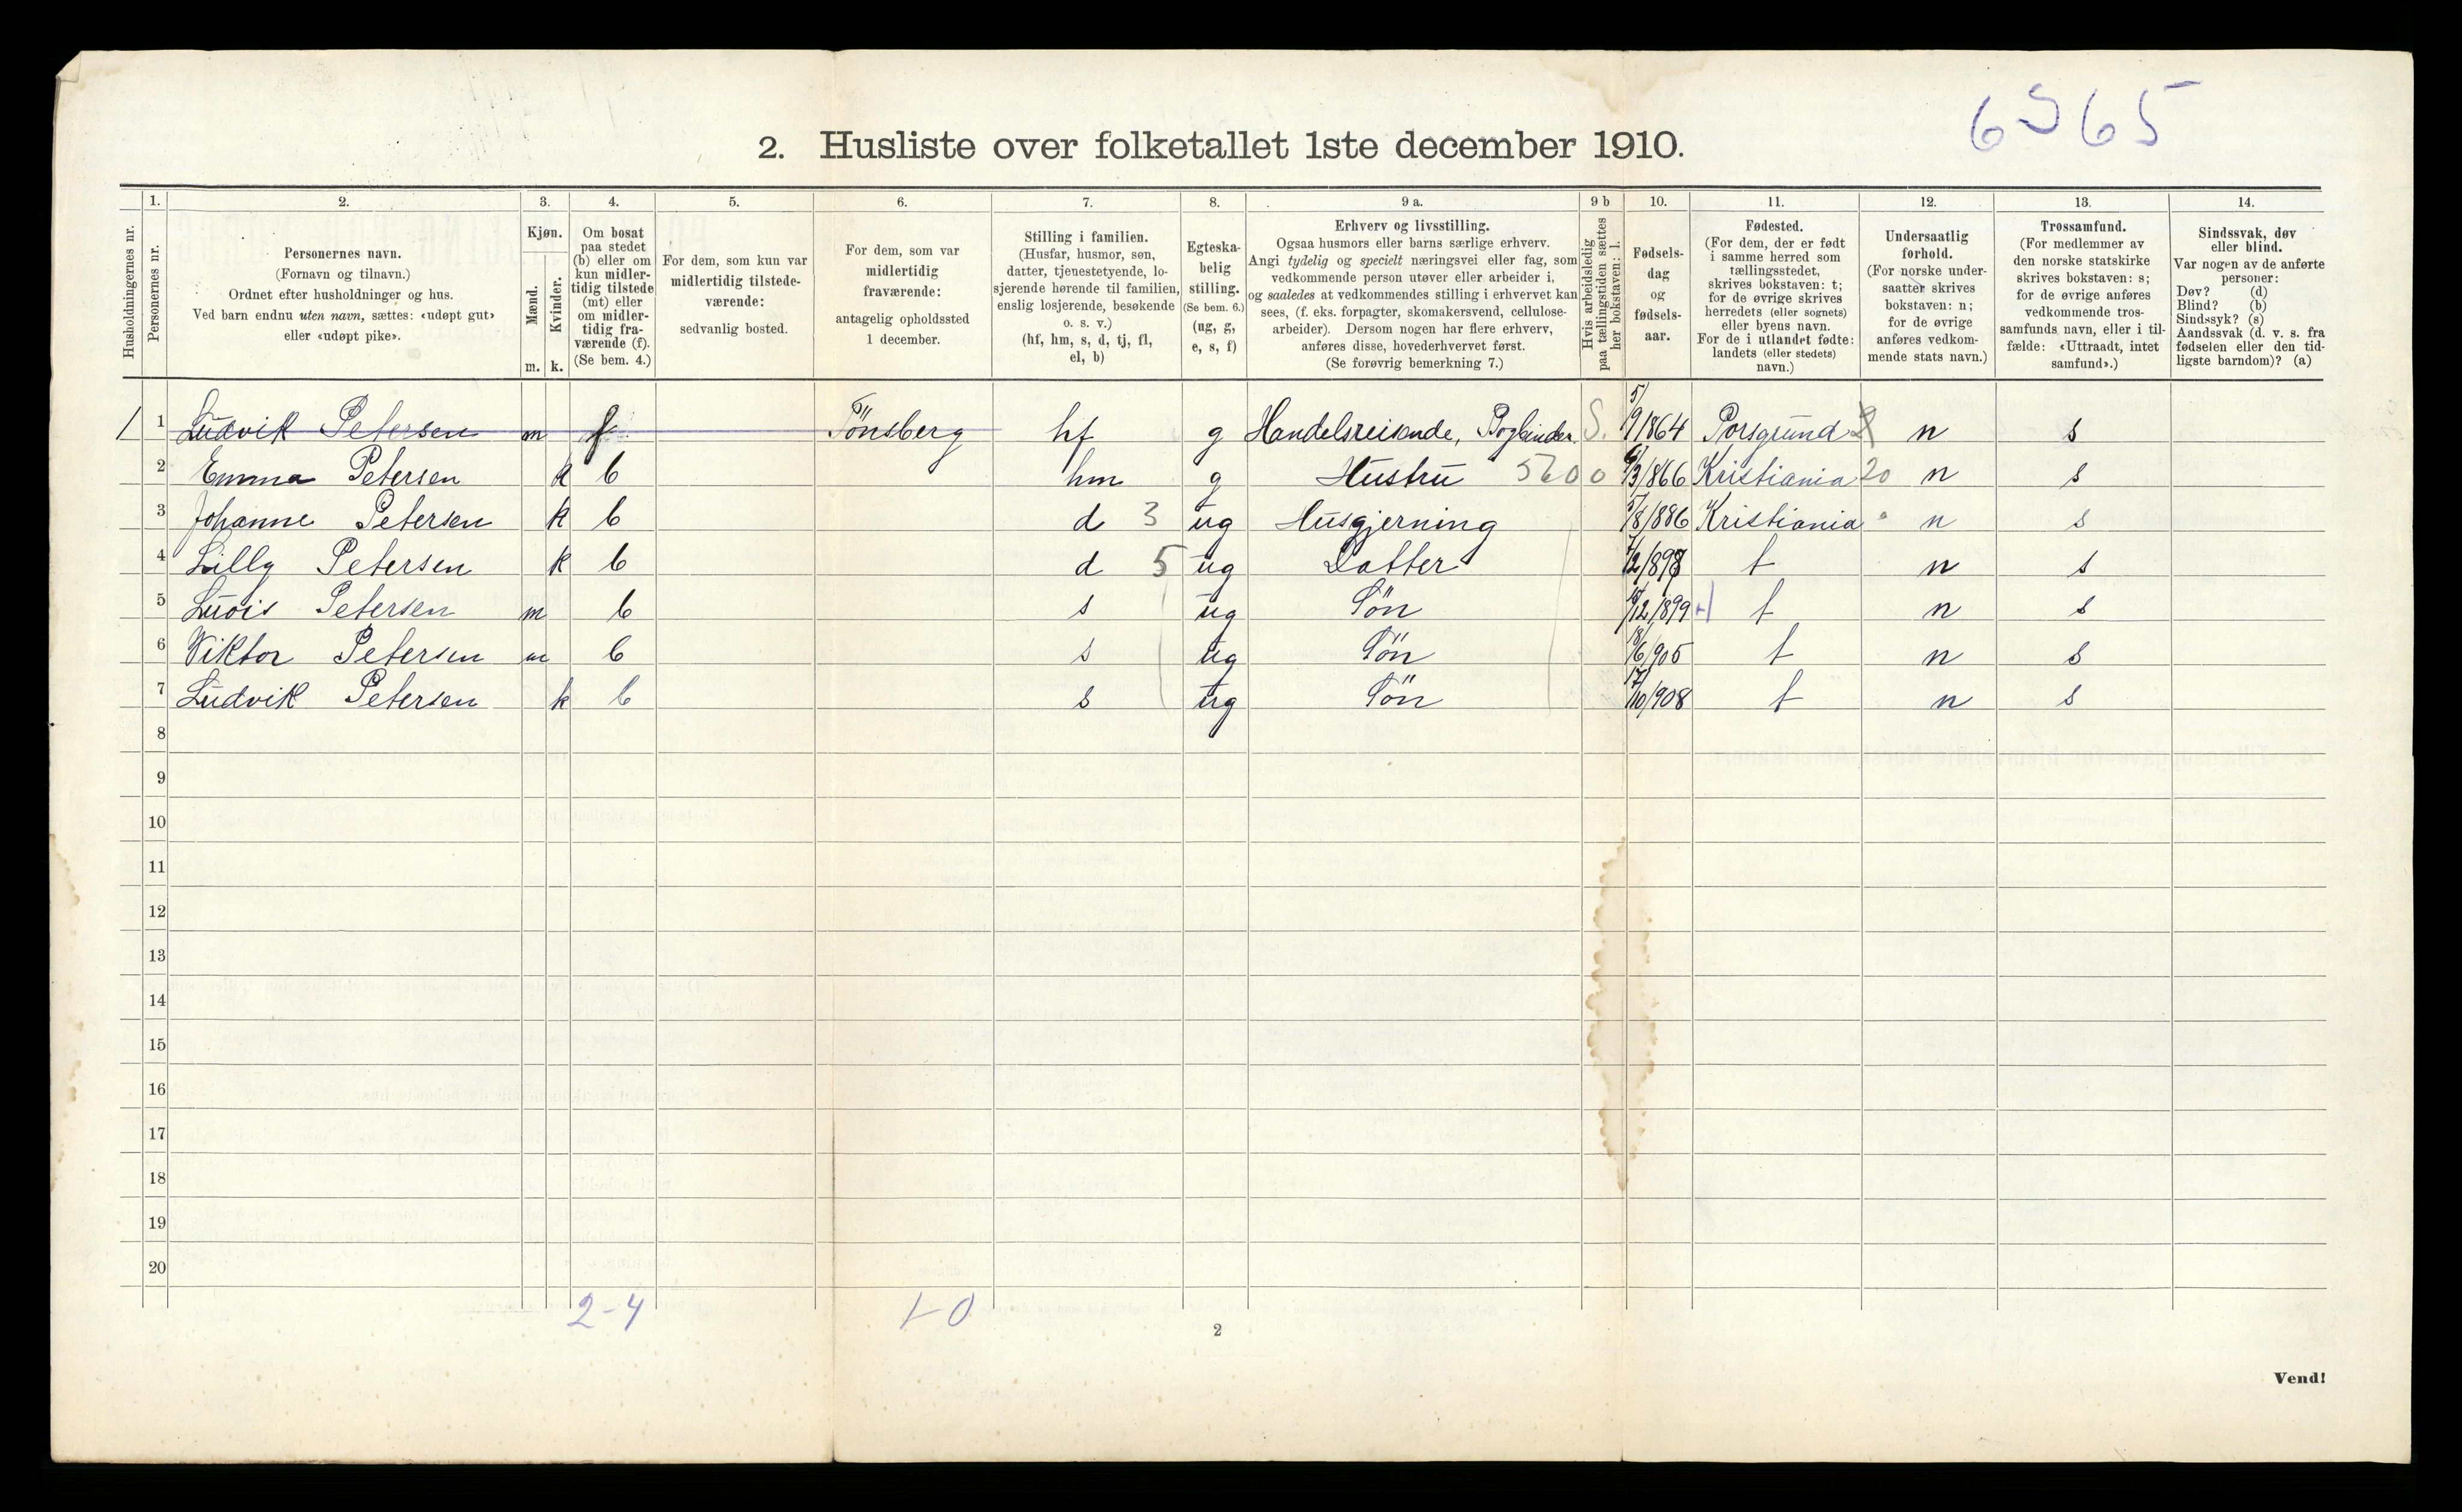 6565
2. Husliste over folketallet 1ste december 1910.
1. 2. 3. 4. 5. 6. 7. 8. 9 a. 9 b 10. 11. 12. 13. 14.
Husholdningernes nr.
Personernes nr.
Personernes navn.
(Fornavn og tilnavn.)
Ordnet efter husholdninger og hus.
Ved barn endnu uten navn, sættes: «udøpt gut»
eller «udøpt pike».
Kjøn.
Mænd.
Kvinder.
m. k.
Om bosat
paa stedet
(b) eller om
kun midler-
tidig tilstede
(mt) eller
om midler-
tidig fra-
værende (f).
(Se bem. 4.)
For dem, som kun var
midlertidig tilstede-
værende:
sedvanlig bosted.
For dem, som var
midlertidig
fraværende:
antagelig opholdssted
1 december.
Stilling i familien.
(Husfar, husmor, søn,
datter, tjenestetyende, lo-
sjerende hørende til familien,
enslig losjerende, besøkende
o. s. v.)
(hf, hm, s, d, tj, fl,
el, b)
Egteska-
belig
stilling.
(Se bem. 6.)
(ug, g,
e, s, f)
Erhverv og livsstilling.
Ogsaa husmors eller barns særlige erhverv.
Angi tydelig og specielt næringsvei eller fag, som
vedkommende person utøver eller arbeider i,
og saaledes at vedkommendes stilling i erhvervet kan
sees, (f. eks. forpagter, skomakersvend, cellulose-
arbeider). Dersom nogen har flere erhverv,
anføres disse, hovederhvervet først.
(Se forøvrig bemerkning 7.)
Hvis arbeidsledig
paa tællingstiden sættes
her bokstaven: l.
Fødsels-
dag
og
fødsels-
aar.
Fødested.
(For dem, der er født
i samme herred som
tællingsstedet,
skrives bokstaven: t;
for de øvrige skrives
herredets (eller sognets)
eller byens navn.
For de i utlandet fødte:
landets (eller stedets)
navn.)
Undersaatlig
forhold.
(For norske under-
saatter skrives
bokstaven: n;
for de øvrige
anføres vedkom-
mende stats navn.)
Trossamfund.
(For medlemmer av
den norske statskirke
skrives bokstaven: s;
for de øvrige anføres
vedkommende tros-
samfunds navn, eller i til-
fælde: «Uttraadt, intet
samfund».)
Sindssvak, døv
eller blind.
Var nogen av de anførte
personer:
Døv? (d)
Blind? (b)
Sindssyk? (s)
Aandssvak (d. v. s. fra
fødselen eller den tid-
ligste barndom)? (a)
1 1 Ludvik Petersen m f Tönsberg hf g Handelsreisende, Bogbinder S. 5/9/864 Porsgrund n s
2 Emma Petersen k b hm g Hustru 5600 6/3/866 Kristiania 20 n s
3 Johanne Petersen k b d 3 ug Husgjerning 5/8/886 Kristiania " n s
4 Lilly Petersen k b d 5 ug Datter 7/2/898 t n s
5 Luvis Petersen m b s ug Sön 15/12/899 t n s
6 Viktor Petersen m b s ug Sön 18/6/905 t n s
7 Ludvik Petersen k b s ug Sön 17/10/908 t n s
8
9
10
11
12
13
14
15
16
17
18
19
20
2-4 1-0
2
Vend!